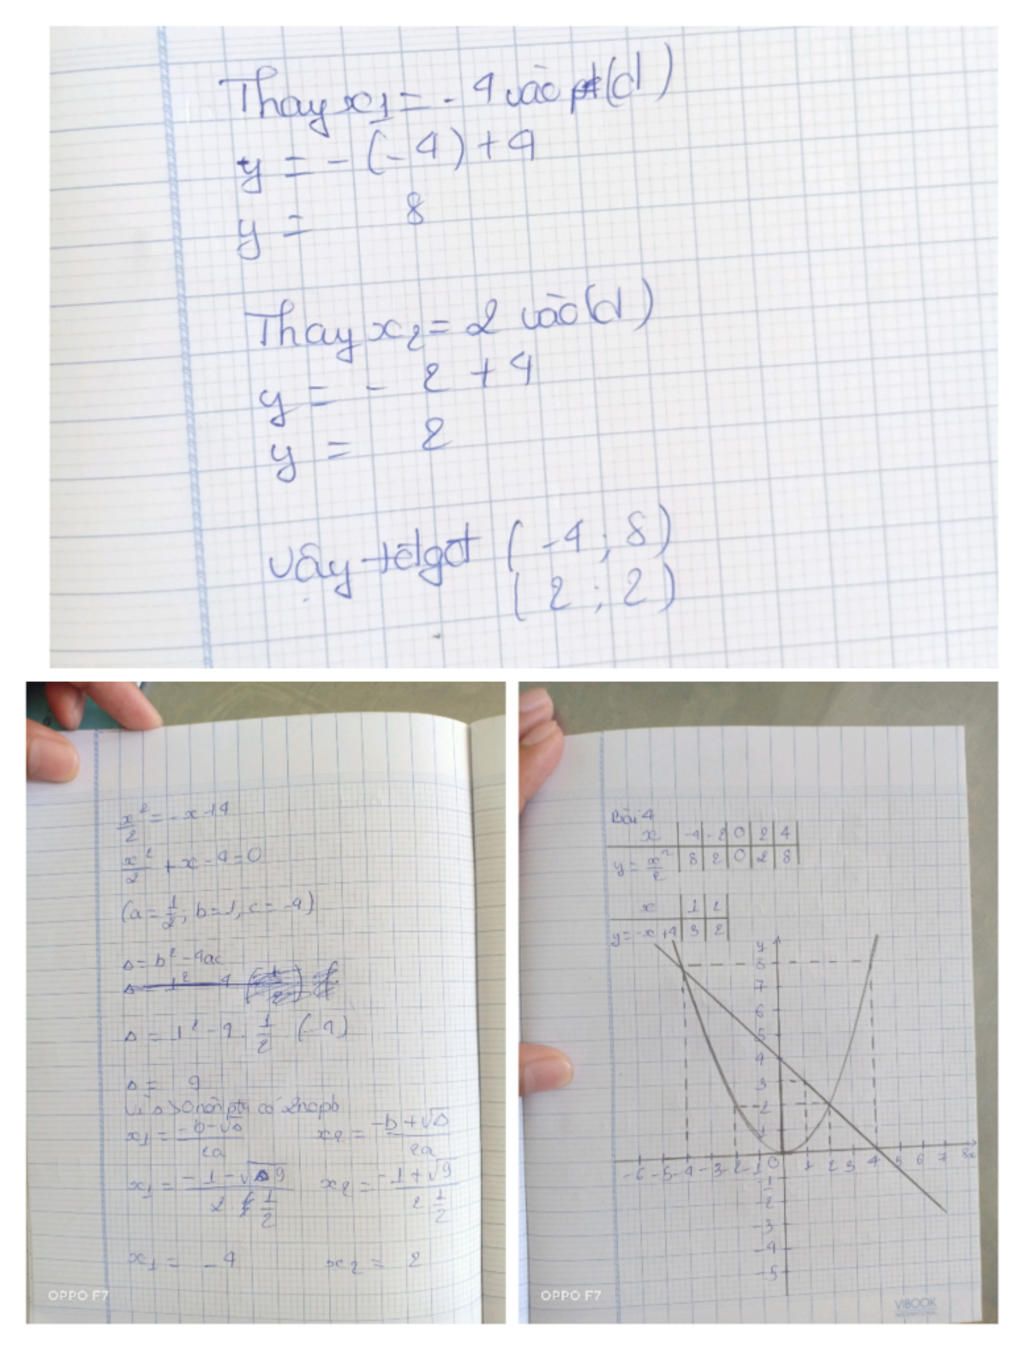 Thay x₁ = -4 vào pt (d)
y = - (-4) + 4
y = 8
Thay x₂ = 2 vào (d)
y = - 2 + 4
y = 2
Vậy tđgđ (-4 ; 8)
(2 ; 2)
x²/2 = -x+4
x²/2 + x - 4 = 0
(a = 1/2 ; b = 1, c = -4)
Δ = b² - 4ac
Δ = 1² - 4 . 1/2 (-4)
Δ = 9
Vì Δ > 0 nên pt có 2nopb
x₁ = -b-√Δ/2a x₂ = -b+√Δ/2a
x₁ = -1-√9/2 1/2 x₂ = -1+√9/2 1/2
x₁ = -4 x₂ = 2
OPPO F7
Bài 4
x -4 -2 0 2 4
y = x²/2 8 2 0 2 8
x 1 2
y = -x+4 3 2
y
8
7
6
5
4
3
2
1
-6 -5 -4 -3 -2 -1 0 1 2 3 4 5 6 7 8 x
-1
-2
-3
-4
-5
OPPO F7
VIBOOK